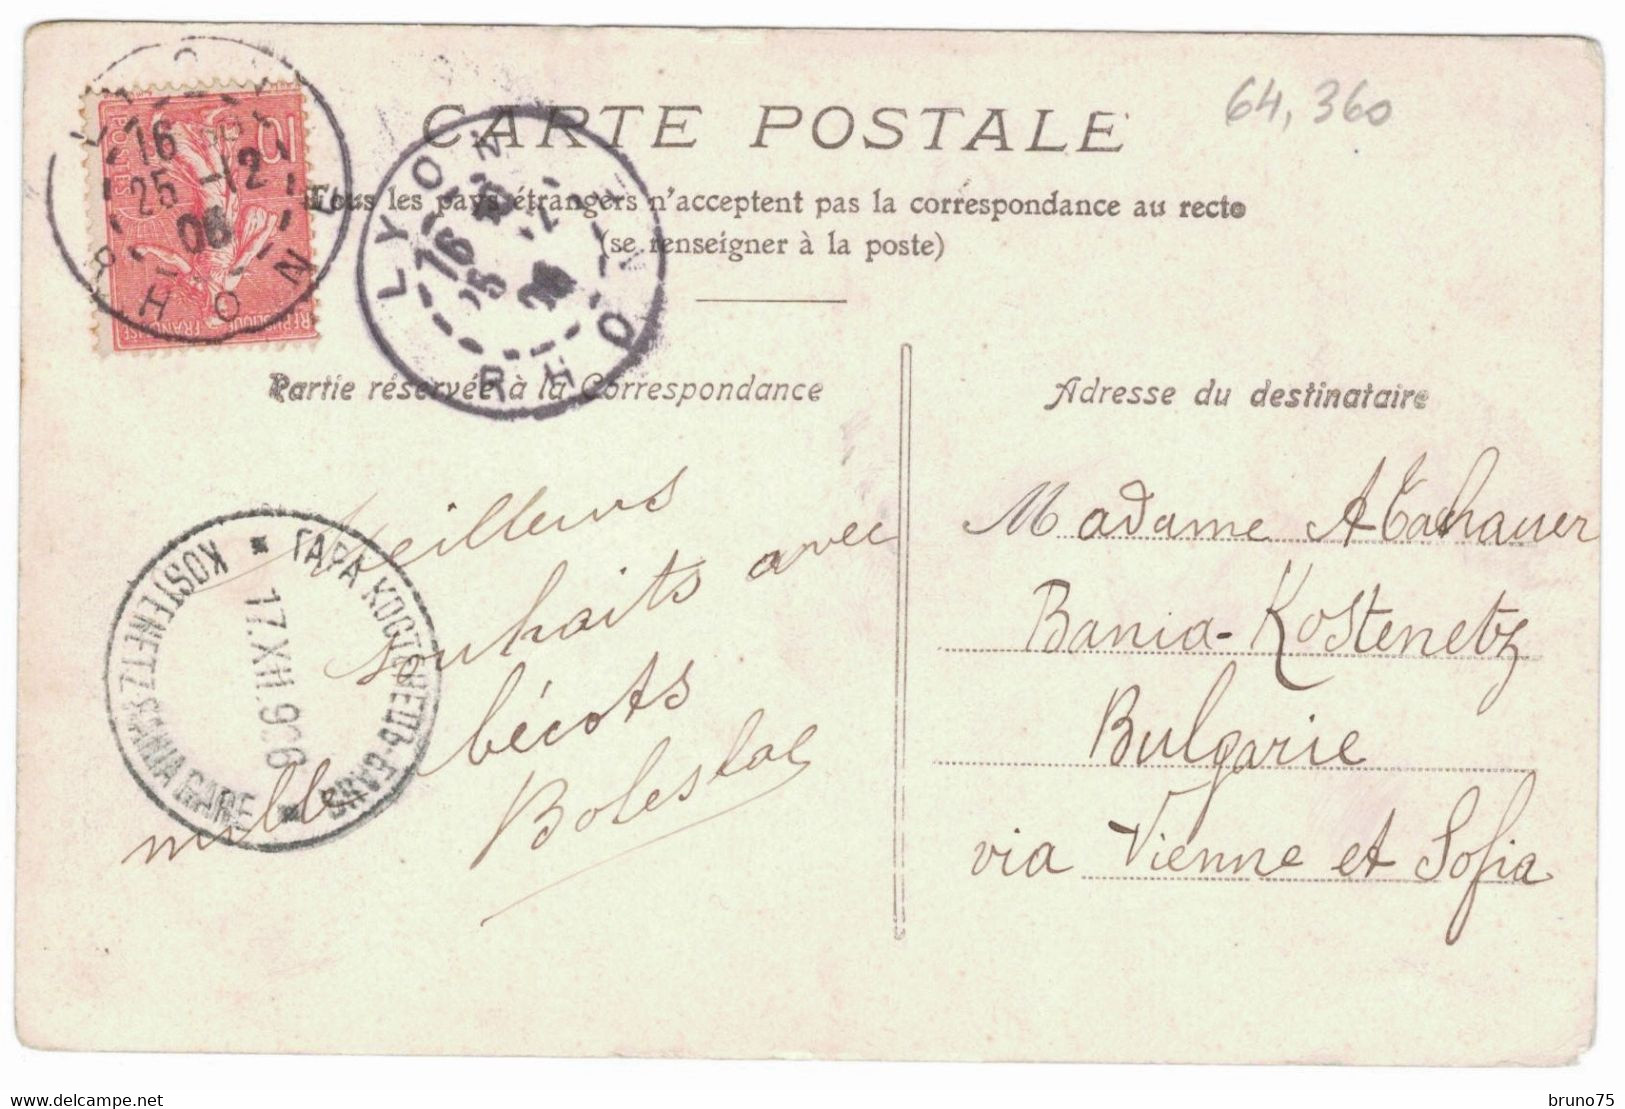 CARTE POSTALE
64,360
Tous les pays étrangers n'acceptent pas la correspondance au recto
(se renseigner à la poste)
Partie réservée à la Correspondance
Adresse du destinataire
Meilleurs
souhaits avec
mille bécots
Boleslas
Madame
Bania-Kostenetz
Bulgarie
via Vienne et Sofia
10
POSTES
REPUBLIQUE FRANÇAISE
LYON
RHONE
16
25 -12
06
LYON
RHONE
16
25
ГАРА КОСТЕНЕЦЪ-БАНЯ
KOSTENETZ-BANIA GARE
17.XII.906
bruno75